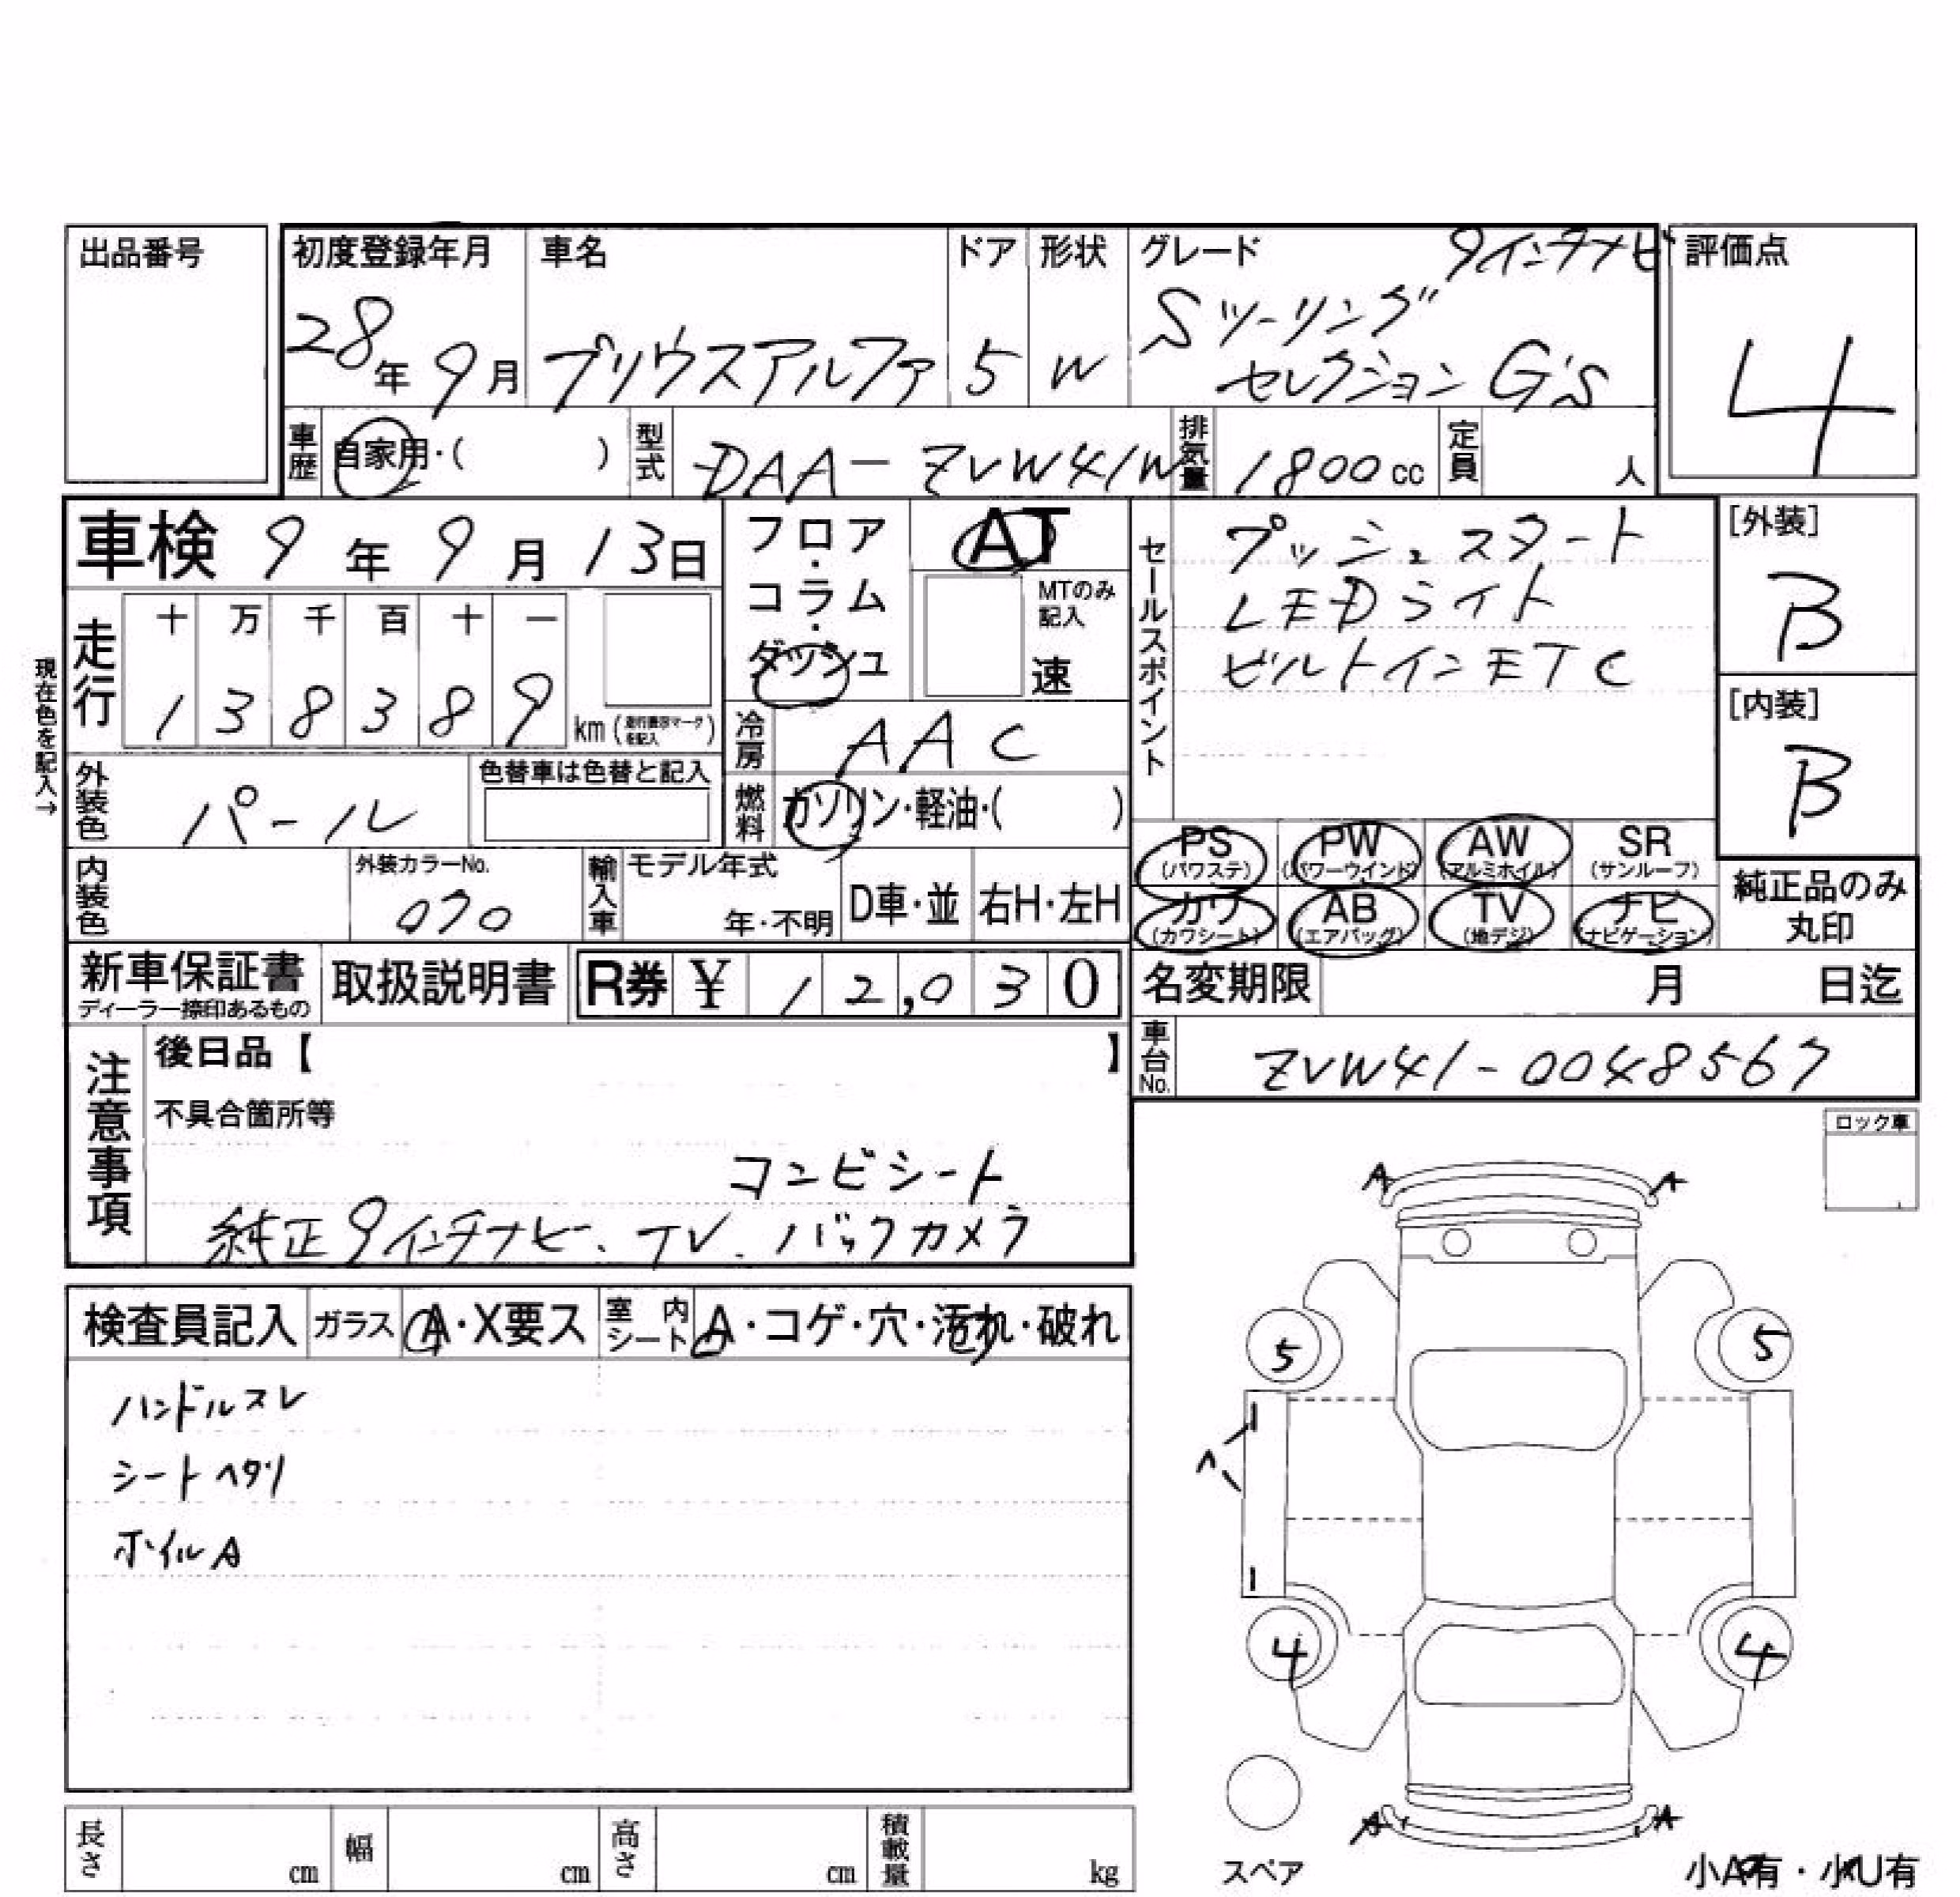 出品番号
初度登録年月
28年 9月
車名
プリウスアルファ
ドア
5
形状
W
グレード 9インチナビ
Sツーリング
セレクション G's
評価点
4
車歴 自家用・( )
型式 DAA-ZVW41W
排気量 1800cc
定員 人
車検 9年 9月 13日
フロア・コラム・ダッシュ
AT
MTのみ記入
速
セールスポイント
プッシュスタート
LEDライト
ビルトインETC
[外装]
B
[内装]
B
現在色を記入→
走行
十 万 千 百 十 一
1 3 8 3 8 9 km (走行表示マークを記入)
冷房 AAC
外装色 パール
色替車は色替と記入
燃料 ガソリン・軽油・( )
PS (パワステ)
PW (パワーウインド)
AW (アルミホイル)
SR (サンルーフ)
カワ (カワシート)
AB (エアバッグ)
TV (地デジ)
ナビ (ナビゲーション)
純正品のみ丸印
内装色
外装カラーNo.
070
輸入車
モデル年式
年・不明
D車・並
右H・左H
新車保証書
ディーラー捺印あるもの
取扱説明書
R券 ¥ 12,030
名変期限 月 日迄
車台No. ZVW41-0048567
注意事項
後日品【 】
不具合箇所等
コンビシート
純正9インチナビ、TV、バックカメラ
ロック車
検査員記入 ガラス A・X要ス 室内シート A・コゲ・穴・汚れ・破れ
ハンドルスレ
シートヘタリ
ホイルA
A A
5 5
4 4
A A
スペア
小A有・小U有
長さ cm
幅 cm
高さ cm
積載量 kg